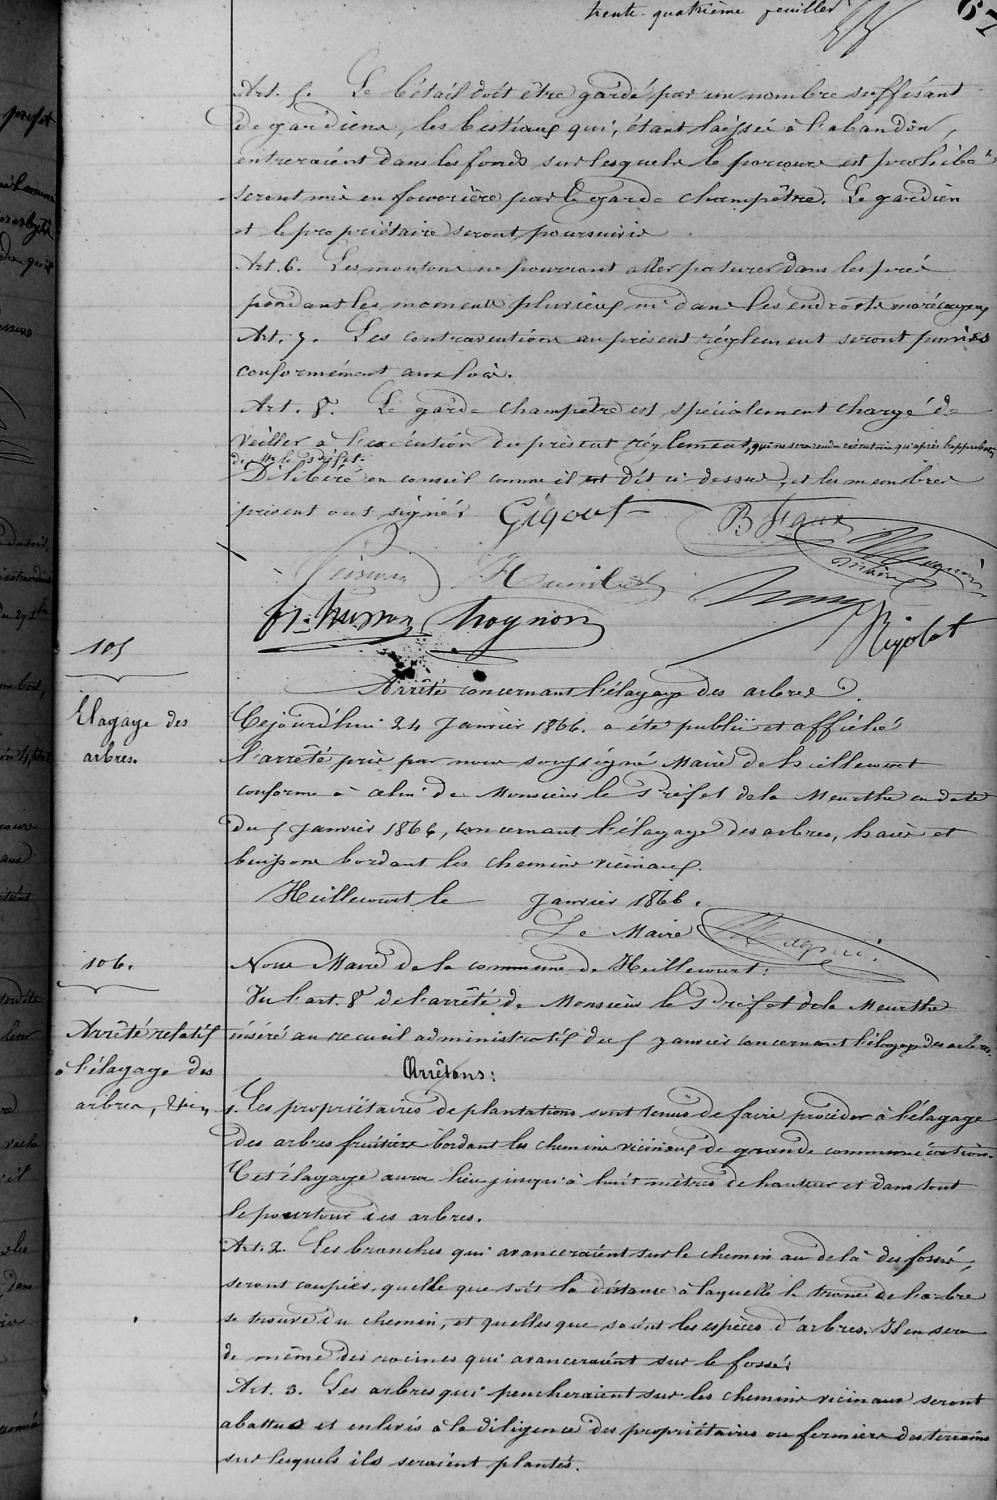 trente-quatrième feuillet
67
Art. 5. Le bétail doit être gardé par un nombre suffisant
de gardiens, les bestiaux qui, étant laissés à l'abandon,
entreraient dans les fonds sur lesquels le parcours est prohibé
seront mis en fourrière par le garde champêtre. Le gardien
et le propriétaire seront poursuivis
Art. 6. Les moutons ne pourront aller paturer dans les prés
pendant les moments pluvieux ni dans les endroits marécageux
Art. 7. Les contraventions au présent règlement seront punies
conformément aux lois.
Art. 8. Le garde champêtre est spécialement chargé de
veiller à l'exécution du présent règlement, qui ne sera rendu exécutoire qu'après l'approbation
de Mr le Préfet.
Délibéré en conseil comme il est dit ci dessus, et les membres
présent ont signé:
Gigout
Humbert
Hognon
Rigolot
105
Elagage des
arbres.
Arrêté concernant l'élagage des arbres.
Cejourd'hui 24 Janvier 1866. a été publié et affiché
l'arrêté pris par nous soussigné Maire de heillecourt
conforme à celui de Monsieur le Préfet de la Meurthe en date
du 5 Janvier 1866, concernant l'élagage des arbres, haies et
buissons bordant les chemins vicinaux.
Heillecourt le Janvier 1866.
Le Maire
106.
Arrêté relatif
à l'élagage des
arbres,
Nous Maire de la commune de Heillecourt:
Vu l'art. 8 de l'arrêté de Monsieur le Préfet de la Meurthe
inséré au recueil administratif du 5 janvier concernant l'élagage des arbres.
Arrêtons:
1. Les propriétaires de plantations sont tenus de faire procéder à l'élagage
des arbres fruitiers bordant les chemins vicinaux de grande communication.
Cet élagage aura lieu jusqu'à huit mètres de hauteur et dans tout
le pourtour des arbres.
Art. 2. Les branches qui avanceraient sur le chemin au delà des fossés,
seront coupées, quelle que soit la distance à laquelle le tronc de l'arbre
se trouve du chemin, et quelles que soient les espèces d'arbres. Il en sera
de même des racines qui avanceraient sur le fossé;
Art. 3. Les arbres qui pencheraient sur les chemins vicinaux seront
abattus et enlevés à la diligence des propriétaires ou fermiers des terrains
sur lesquels ils seraient plantés.